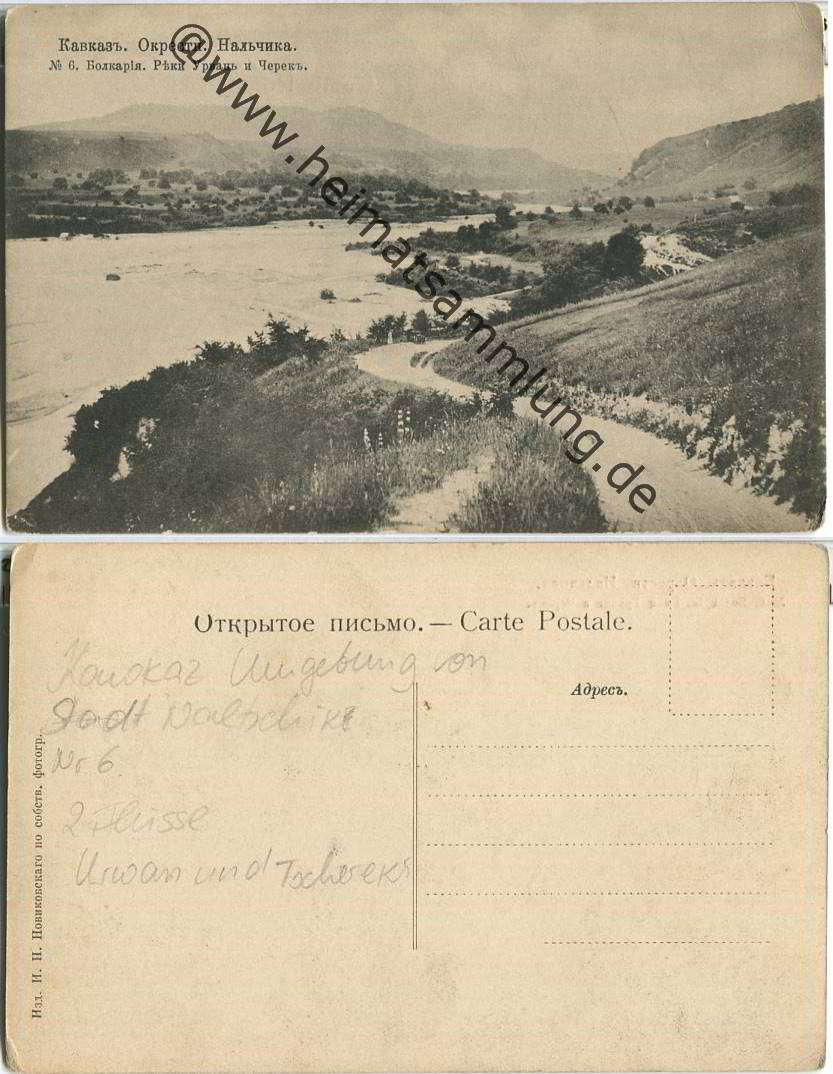 Кавказъ. Окрестн. Нальчика.
№ 6. Болкарія. Рѣки Урвань и Черекъ.
@www.heimatsammlung.de
Открытое письмо. — Carte Postale.
Адресъ.
Kaukaz Umgebung von
Stadt Naltschik
Nr 6
2 Flüsse
Urwan und Tscherek
Изд. И. П. Новиковскаго по собств. фотогр.